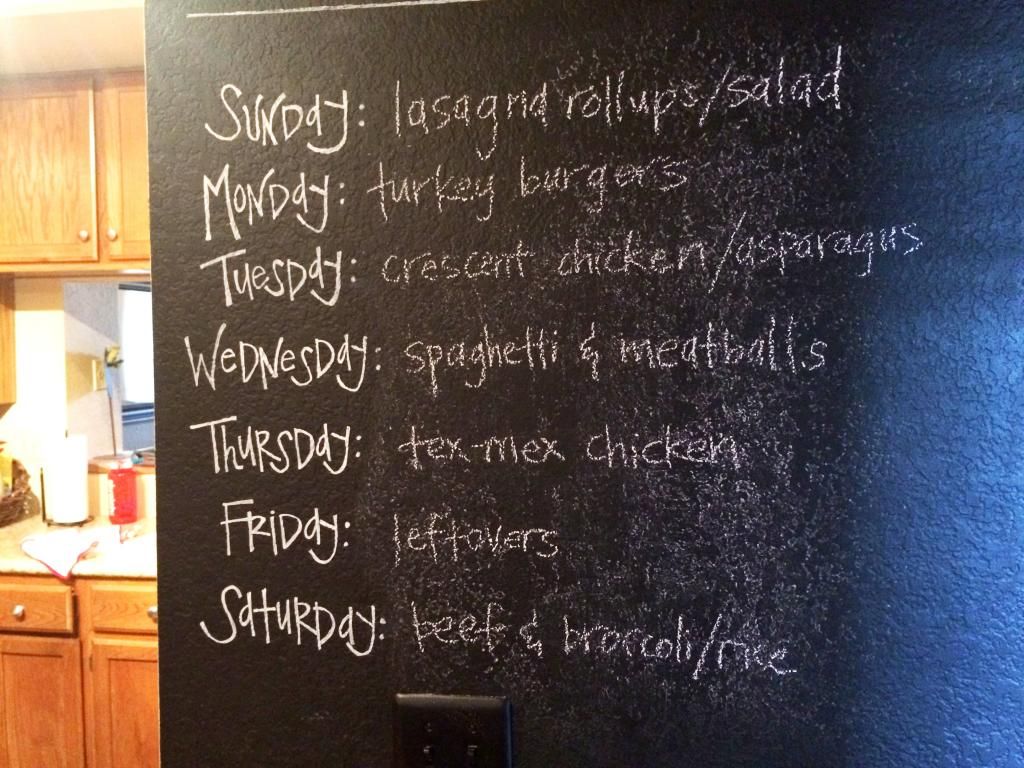 Sunday: lasagna rollups/salad
Monday: turkey burgers
Tuesday: crescent chicken/asparagus
Wednesday: spaghetti & meatballs
Thursday: tex-mex chicken
Friday: leftovers
Saturday: beef & broccoli/rice